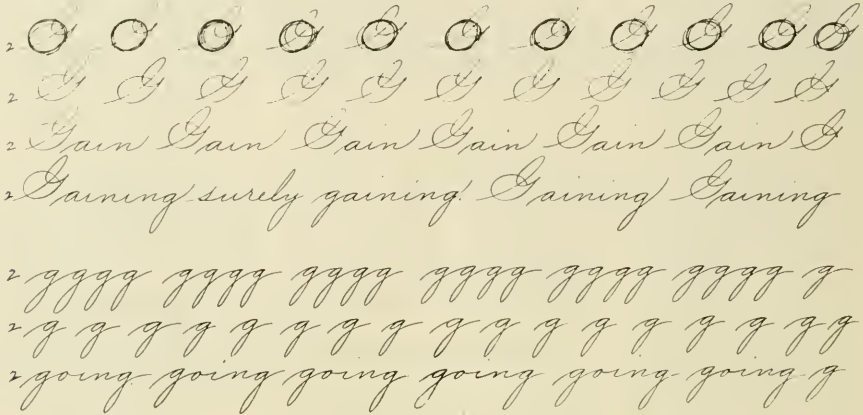 2 G G G G G G G G G G G
2 G G G G G G G G G G G
2 Gain Gain Gain Gain Gain Gain G
2 Gaining surely gaining. Gaining Gaining
2 gggg gggg gggg gggg gggg gggg g
2 g g g g g g g g g g g g g g g g g
2 going going going going going going g